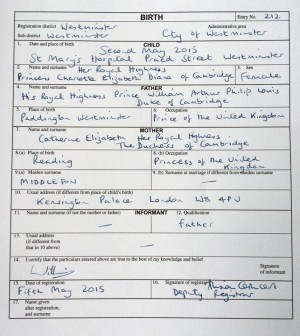 BIRTH
Entry No. 212
Registration district Westminster
Administrative area
Sub-district Westminster
City of Westminster
CHILD
1. Date and place of birth
Second May 2015
St Mary's Hospital Praed Street Westminster
2. Name and surname
Her Royal Highness
3. Sex
Princess Charlotte Elizabeth Diana of Cambridge
Female
FATHER
4. Name and surname
His Royal Highness Prince William Arthur Philip Louis
Duke of Cambridge
5. Place of birth
Paddington Westminster
6. Occupation
Prince of the United Kingdom
MOTHER
7. Name and surname
Catherine Elizabeth Her Royal Highness
The Duchess of Cambridge
8.(a) Place of birth
Reading
8.(b) Occupation
Princess of the United Kingdom
9.(a) Maiden surname
MIDDLETON
9.(b) Surname at marriage if different from maiden surname
10. Usual address (if different from place of child's birth)
Kensington Palace London W8 4PU
INFORMANT
11. Name and surname (if not the mother or father)
12. Qualification
Father
13. Usual address
(if different from
that in 10 above)
14. I certify that the particulars entered above are true to the best of my knowledge and belief
William
Signature
of informant
15. Date of registration
Fifth May 2015
16. Signature of registrar
Deputy Registrar
17. Name given
after registration,
and surname